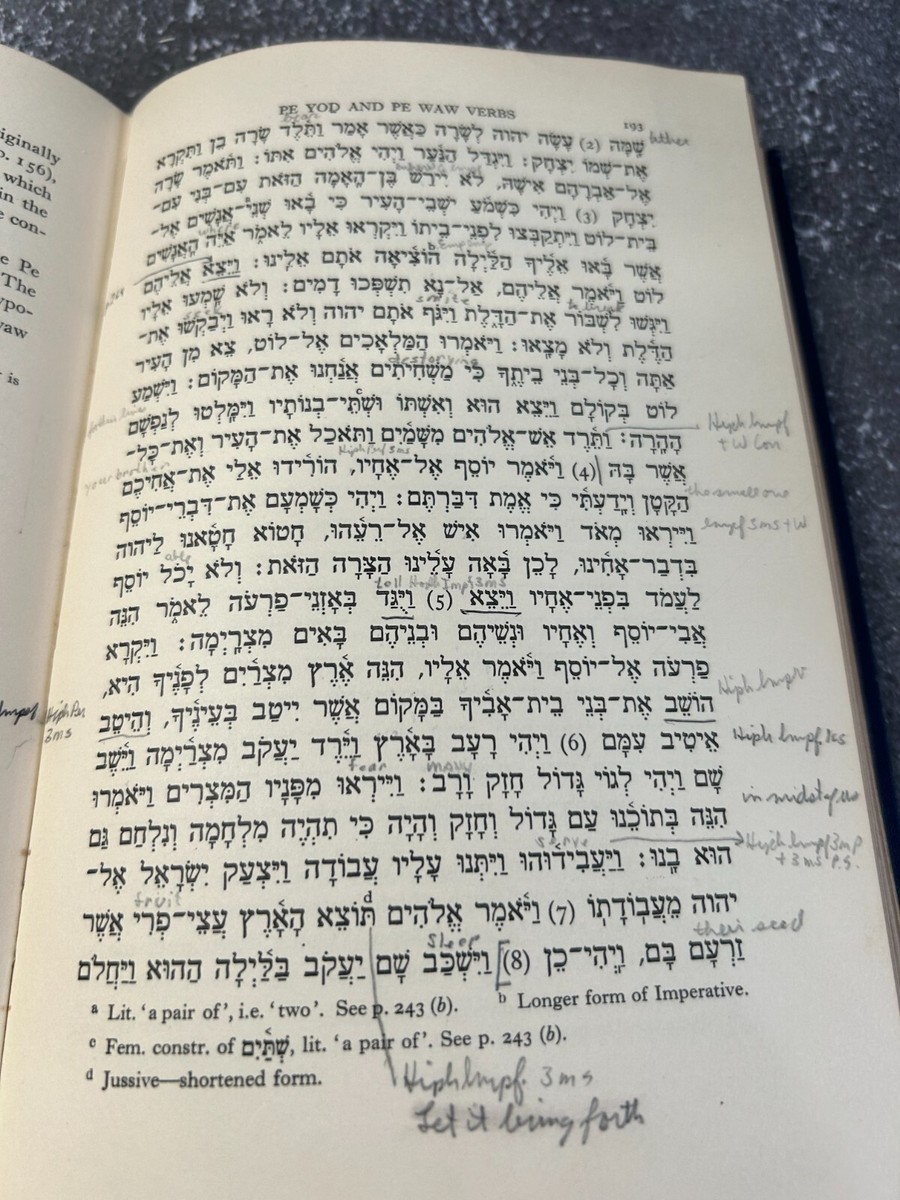 PE YOD AND PE WAW VERBS 193
שָׁמָּה (2) עָשָׂה יהוה לְשָׂרָה כַּאֲשֶׁר אָמַר וַתֵּ֫לֶד שָׂרָה בֵן וַתִּקְרָא
אֶת־שְׁמוֹ יִצְחָק׃ וַיִּגְדַּל הַנַּ֫עַר וַיְהִי אֱלֹהִים אִתּוֹ׃ וַתֹּ֫אמֶר שָׂרָה
אֶל־אַבְרָהָם אִישָׁהּ, לֹא יִירַשׁ בֶּן־הָאָמָה הַזֹּאת עִם־בְּנִי עִם־
יִצְחָק (3) וַיְהִי כִּשְׁמֹעַ ישְׁבֵי־הָעִיר כִּי בָ֫אוּ שְׁנֵי־אֲנָשִׁים אֶל־
בֵּית־לוֹט וַיִּתְקַבְּצוּ לִפְנֵי־בֵיתוֹ וַיִּקְרְאוּ אֵלָיו לֵאמֹר אַיֵּה הָאֲנָשִׁים
אֲשֶׁר בָּ֫אוּ אֵלֶ֫יךָ הַלַּ֫יְלָה הוֹצִ֫יאָה אֹתָם אֵלֵ֫ינוּ׃ וַיֵּצֵא אֲלֵיהֶם
לוֹט וַיֹּ֫אמֶר אֲלֵיהֶם, אַל־נָא תִשְׁפְּכוּ דָמִים׃ וְלֹא שָׁמְעוּ אֵלָיו
וַיִּגְּשׁוּ לִשְׁבּוֹר אֶת־הַדֶּ֫לֶת וַיִּגֹּף אֹתָם יהוה וְלֹא רָאוּ וַיְבַקְשׁוּ אֶת־
הַדֶּ֫לֶת וְלֹא מָצָ֫אוּ׃ וַיֹּאמְרוּ הַמַּלְאָכִים אֶל־לוֹט, צֵא מִן הָעִיר
אַתָּה וְכָל־בְּנֵי בֵיתֶ֫ךָ כִּי מַשְׁחִיתִים אֲנַ֫חְנוּ אֶת־הַמָּקוֹם׃ וַיִּשְׁמַע
לוֹט בְּקוֹלָם וַיֵּצֵא הוּא וְאִשְׁתּוֹ וּשְׁתֵּי־בְנוֹתָיו וַיִּמָּלְטוּ לְנַפְשָׁם
הָהָ֫רָה׃ וַתֵּ֫רֶד אֵשׁ־אֱלֹהִים מִשָּׁמַ֫יִם וַתֹּ֫אכַל אֶת־הָעִיר וְאֶת־כָּל־
אֲשֶׁר בָּהּ (4) וַיֹּ֫אמֶר יוֹסֵף אֶל־אֶחָיו, הוֹרִ֫ידוּ אֵלַי אֶת־אֲחִיכֶם
הַקָּטֹן וְיָדַעְתִּי כִּי אֱמֶת דִּבַּרְתֶּם׃ וַיְהִי כְּשָׁמְעָם אֶת־דִּבְרֵי־יוֹסֵף
וַיִּירְאוּ מְאֹד וַיֹּאמְרוּ אִישׁ אֶל־רֵעֵ֫הוּ, חָטוֹא חָטָ֫אנוּ לַיהוה
בִּדְבַר־אָחִ֫ינוּ, לָכֵן בָּ֫אָה עָלֵ֫ינוּ הַצָּרָה הַזֹּאת׃ וְלֹא יָכֹל יוֹסֵף
לַעֲמֹד בִּפְנֵי־אֶחָיו וַיֵּצֵא (5) וַיֻּגַּד בְּאָזְנֵי־פַרְעֹה לֵאמֹר הִנֵּה
אֲבִי־יוֹסֵף וְאֶחָיו וּנְשֵׁיהֶם וּבְנֵיהֶם בָּאִים מִצְרָ֫יְמָה׃ וַיִּקְרָא
פַרְעֹה אֶל־יוֹסֵף וַיֹּ֫אמֶר אֵלָיו, הִנֵּה אֶ֫רֶץ מִצְרַ֫יִם לְפָנֶ֫יךָ הִיא,
הוֹשֵׁב אֶת־בְּנֵי בֵית־אָבִ֫יךָ בַּמָּקוֹם אֲשֶׁר יִיטַב בְּעֵינֶ֫יךָ, וְהֵיטֵב
אֵיטִיב עִמָּם (6) וַיְהִי רָעָב בָּאָ֫רֶץ וַיֵּ֫רֶד יַעֲקֹב מִצְרַ֫יְמָה וַיֵּ֫שֶׁב
שָׁם וַיְהִי לְגוֹי גָּדוֹל חָזָק וָרָב׃ וַיִּירְאוּ מִפָּנָיו הַמִּצְרִים וַיֹּאמְרוּ
הִנֵּה בְתוֹכֵ֫נוּ עַם גָּדוֹל וְחָזָק וְהָיָה כִּי תִהְיֶה מִלְחָמָה וְנִלְחַם גַּם
הוּא בָ֫נוּ׃ וַיַּעֲבִידֻ֫הוּ וַיִּתְּנוּ עָלָיו עֲבוֹדָה וַיִּצְעַק יִשְׂרָאֵל אֶל־
יהוה מֵעֲבוֹדָתוֹ (7) וַיֹּ֫אמֶר אֱלֹהִים תּוֹצֵא הָאָ֫רֶץ עֲצֵי־פְרִי אֲשֶׁר
זַרְעָם בָּם, וַיְהִי־כֵן (8) וַיִּשְׁכַּב שָׁם יַעֲקֹב בַּלַּ֫יְלָה הַהוּא וַיַּחֲלֹם
a Lit. 'a pair of', i.e. 'two'. See p. 243 (b). b Longer form of Imperative.
c Fem. constr. of שְׁתַּ֫יִם, lit. 'a pair of'. See p. 243 (b).
d Jussive—shortened form.
Hiph Impf. 3ms
Let it bring forth
iginally
p. 156),
which
in the
e con-
e Pe
The
ypo-
waw
is
bear
where
smite
destroying
Hiph Impf
+ W Con
your brother
Hiph Impf 3ms
the small one
Impf 3ms + W
able
tell Hoph Impf 3ms
Hiph Impv
3ms
Hiph Impf 1cs
fear
many
in midst of us
serve
Hiph Impf 3mp
+ 3ms P.S.
fruit
their seed
Sleep